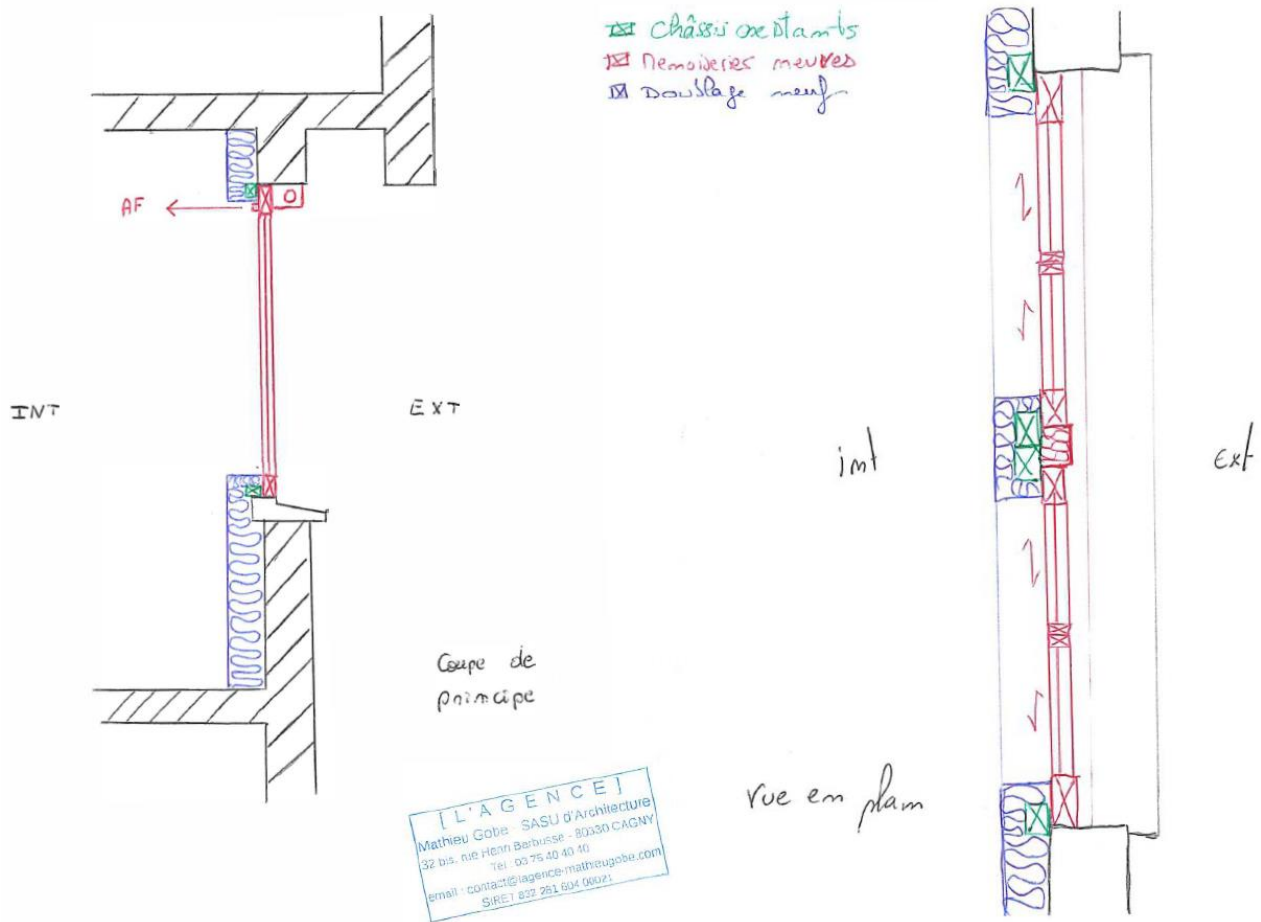 Châssis existants
Menuiseries neuves
Doublage neuf
AF
INT
EXT
int
Ext
Coupe de
principe
Vue en plan
[ L'AGENCE ]
Mathieu Gobe - SASU d'Architecture
32 bis, rue Henri Barbusse - 80330 CAGNY
Tél : 03 75 40 40 40
email : contact@lagence-mathieugobe.com
SIRET 832 281 604 00021